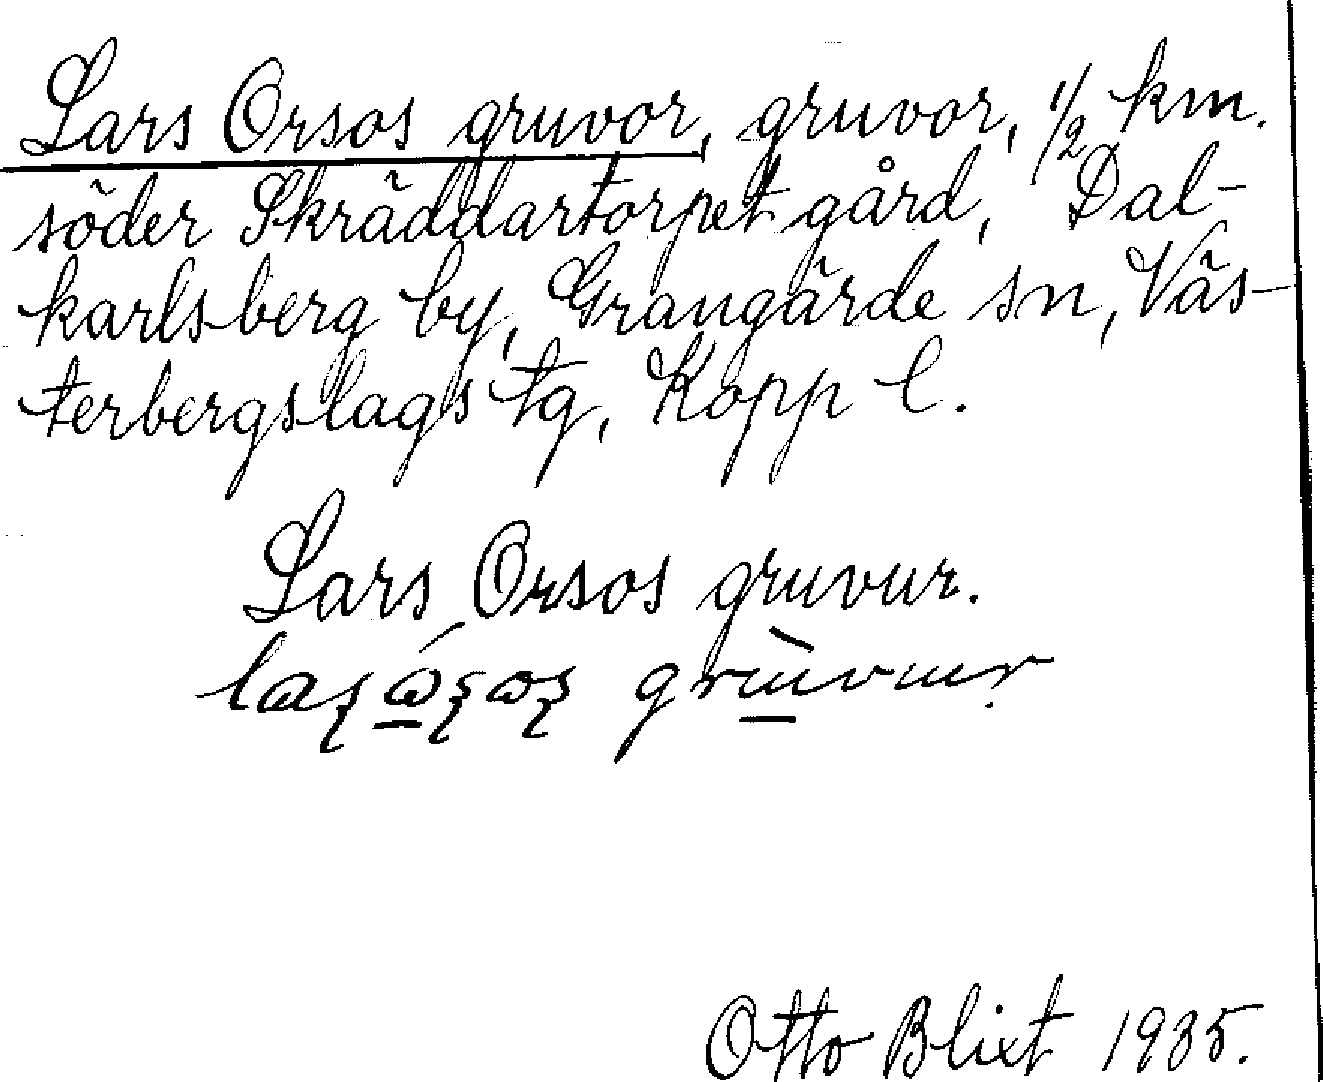 Lars Orsos gruvor, gruvor, 1/2 km.
söder Skräddartorpet gård, Dal-
karlsberg by, Grangärde sn, Väs-
terbergslags tg, Kopp l.
Lars Orsos gruvur.
Otto Blixt 1935.